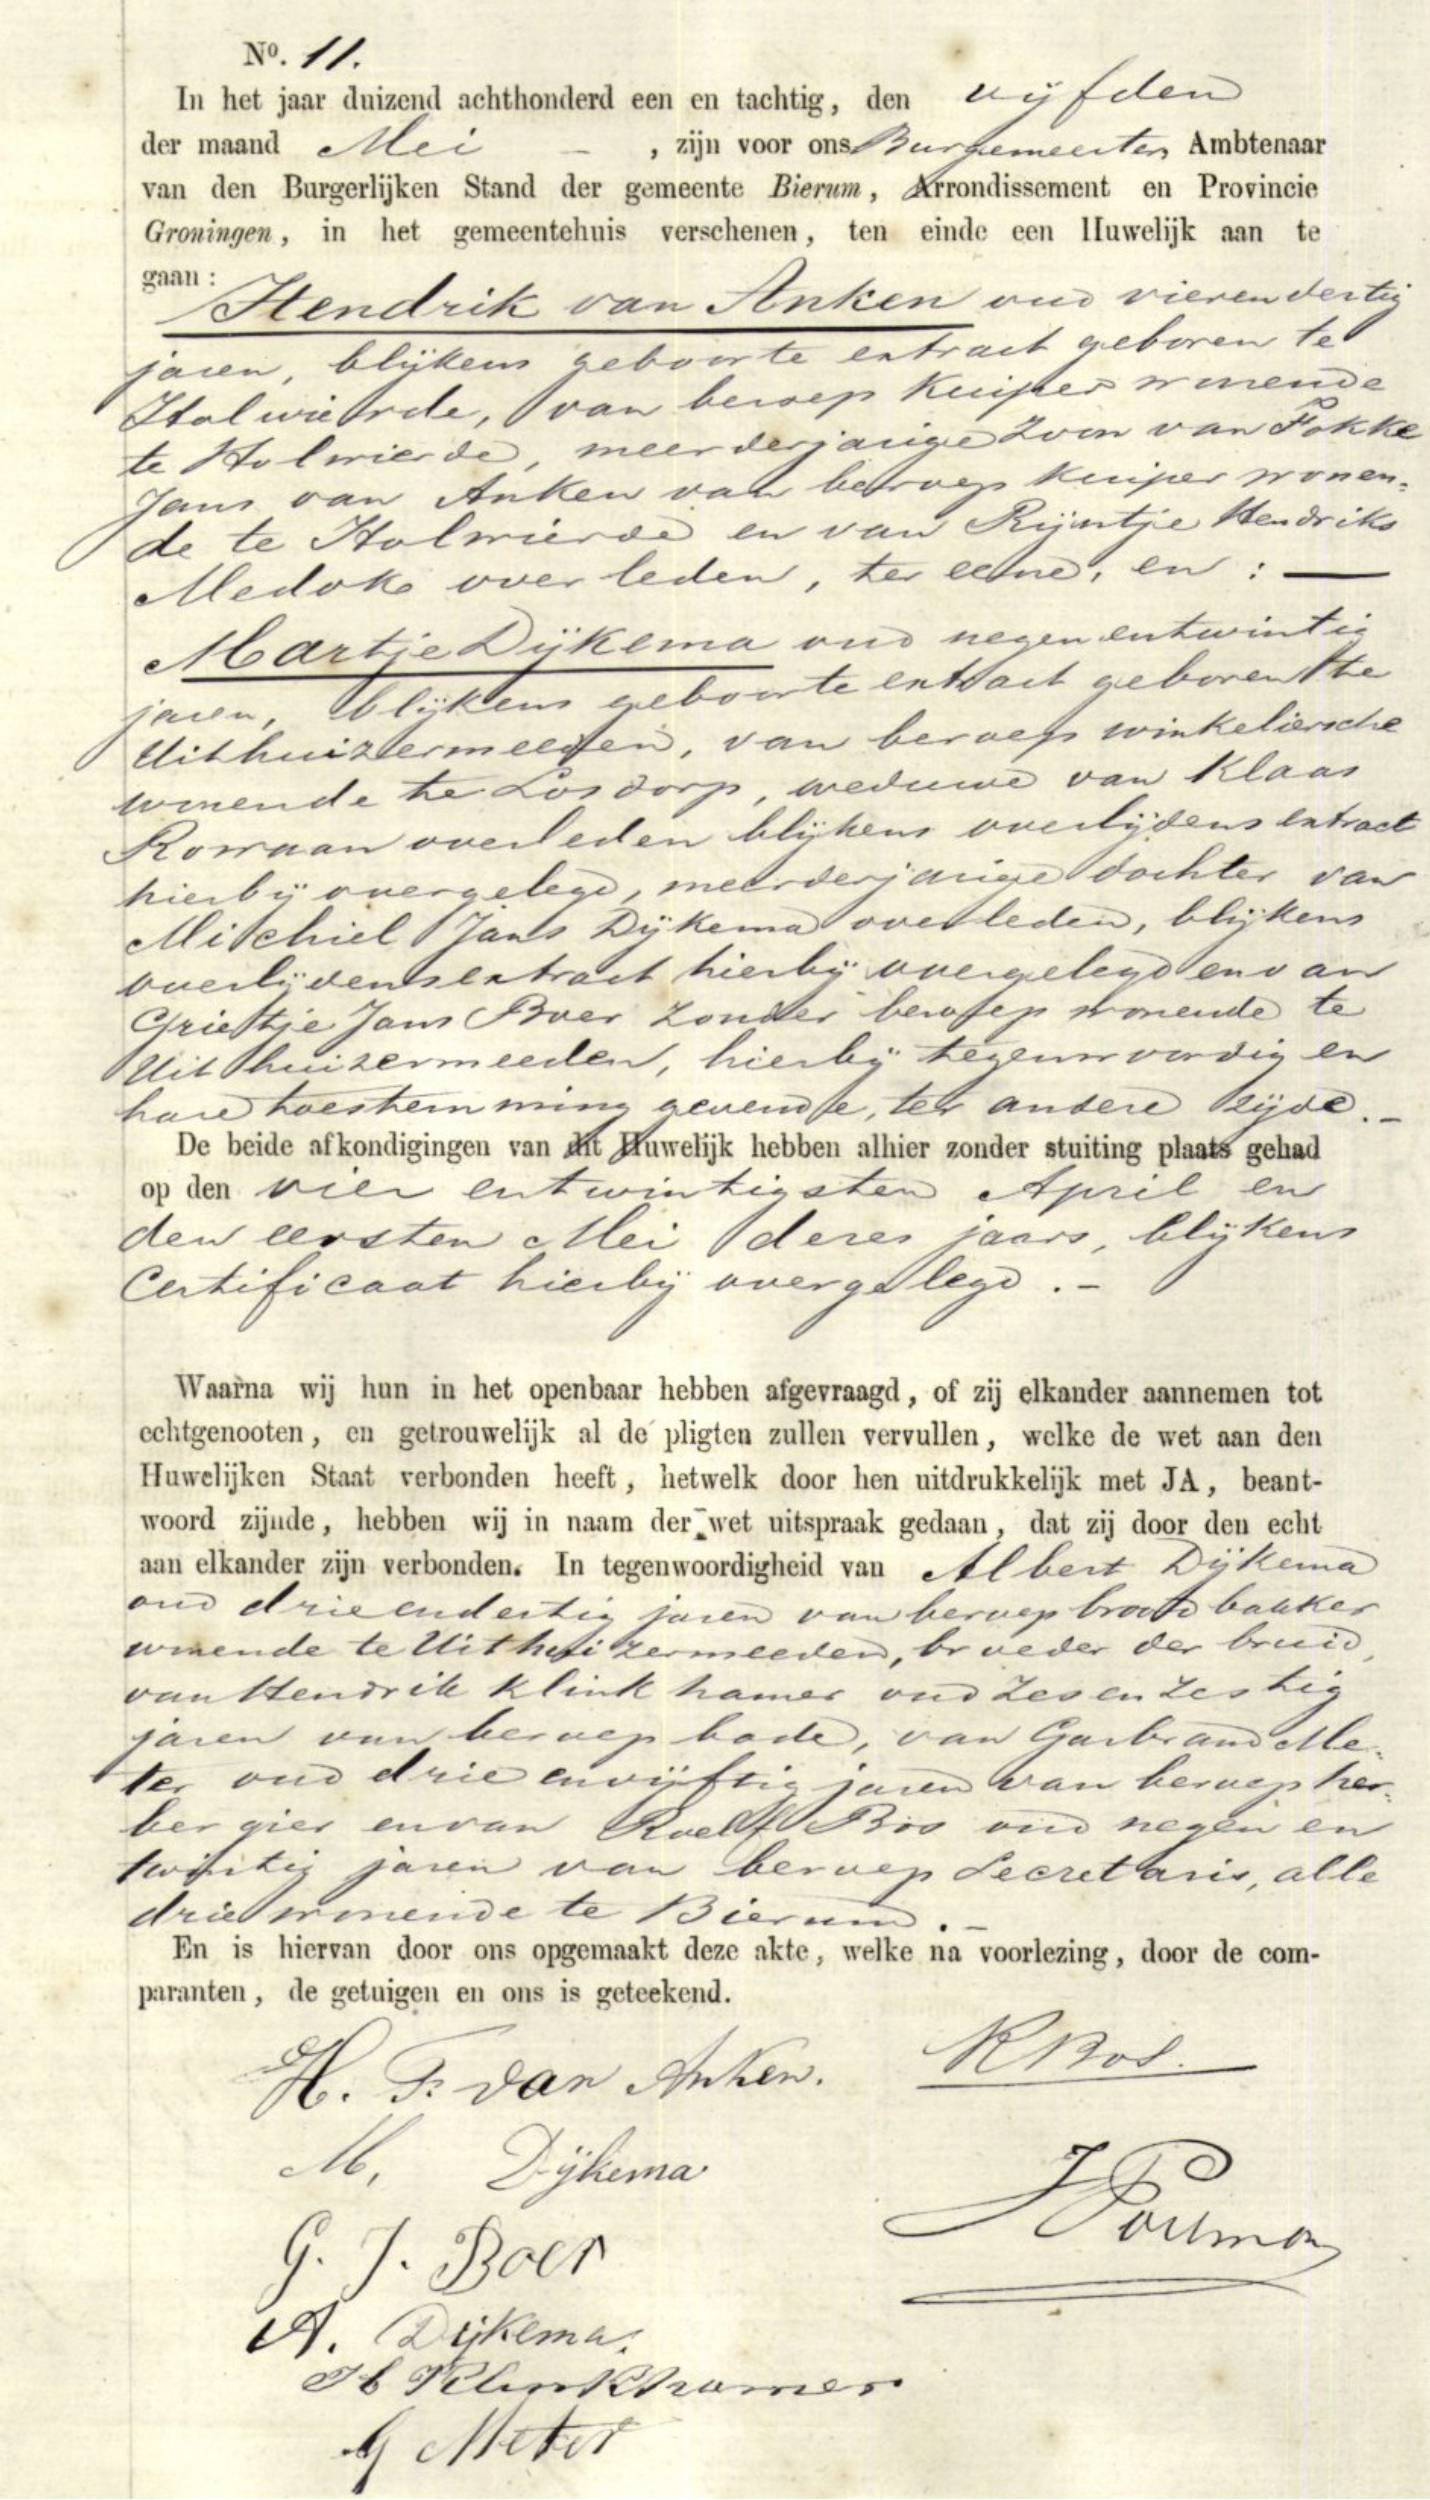 No. 11.
In het jaar duizend achthonderd een en tachtig, den vijfden
der maand Mei – , zijn voor ons Burgemeester, Ambtenaar
van den Burgerlijken Stand der gemeente Bierum, Arrondissement en Provincie
Groningen, in het gemeentehuis verschenen, ten einde een Huwelijk aan te
gaan:
Hendrik van Anken oud vierendertig
jaren, blijkens geboorte extract geboren te
Holwierde, van beroep kuiper wonende
te Holwierde, meerderjarige zoon van Fokke
Jans van Anken van beroep kuiper wonen-
de te Holwierde en van Rijntje Hendriks
Medok overleden, ter eene, en : —
Martje Dijkema oud negenentwintig
jaren, blijkens geboorte extract geboren te
Uithuizermeeden, van beroep winkeliersche
wonende te Losdorp, weduwe van Klaas
Rowaan overleden blijkens overlijdens extract
hierbij overgelegd, meerderjarige dochter van
Michiel Jans Dijkema overleden, blijkens
overlijdensextract hierbij overgelegd en van
Grietje Jans Boer zonder beroep wonende te
Uithuizermeeden, hierbij tegenwoordig en
hare toestemming gevende, ter andere zijde. –
De beide afkondigingen van dit Huwelijk hebben alhier zonder stuiting plaats gehad
op den vier entwintigsten April en
den eersten Mei dezes jaars, blijkens
Certificaat hierbij overgelegd . –
Waarna wij hun in het openbaar hebben afgevraagd, of zij elkander aannemen tot
echtgenooten, en getrouwelijk al de pligten zullen vervullen, welke de wet aan den
Huwelijken Staat verbonden heeft, hetwelk door hen uitdrukkelijk met JA, beant-
woord zijnde, hebben wij in naam der wet uitspraak gedaan, dat zij door den echt
aan elkander zijn verbonden. In tegenwoordigheid van Albert Dijkema
oud drieendertig jaren van beroep broodbakker
wonende te Uithuizermeeden, broeder der bruid,
van Hendrik Klinkhamer oud zesenzestig
jaren van beroep bode, van Garbrand Me-
ter oud drie envijftig jaren van beroep her-
bergier en van Roelf Bos oud negen en
twintig jaren van beroep Secretaris, alle
drie wonende te Bierum . –
En is hiervan door ons opgemaakt deze akte, welke na voorlezing, door de com-
paranten, de getuigen en ons is geteekend.
H. F. van Anken.
R Bos.
M, Dijkema
G. J. Boer
A. Dijkema.
H Klinkhamer
G Meter